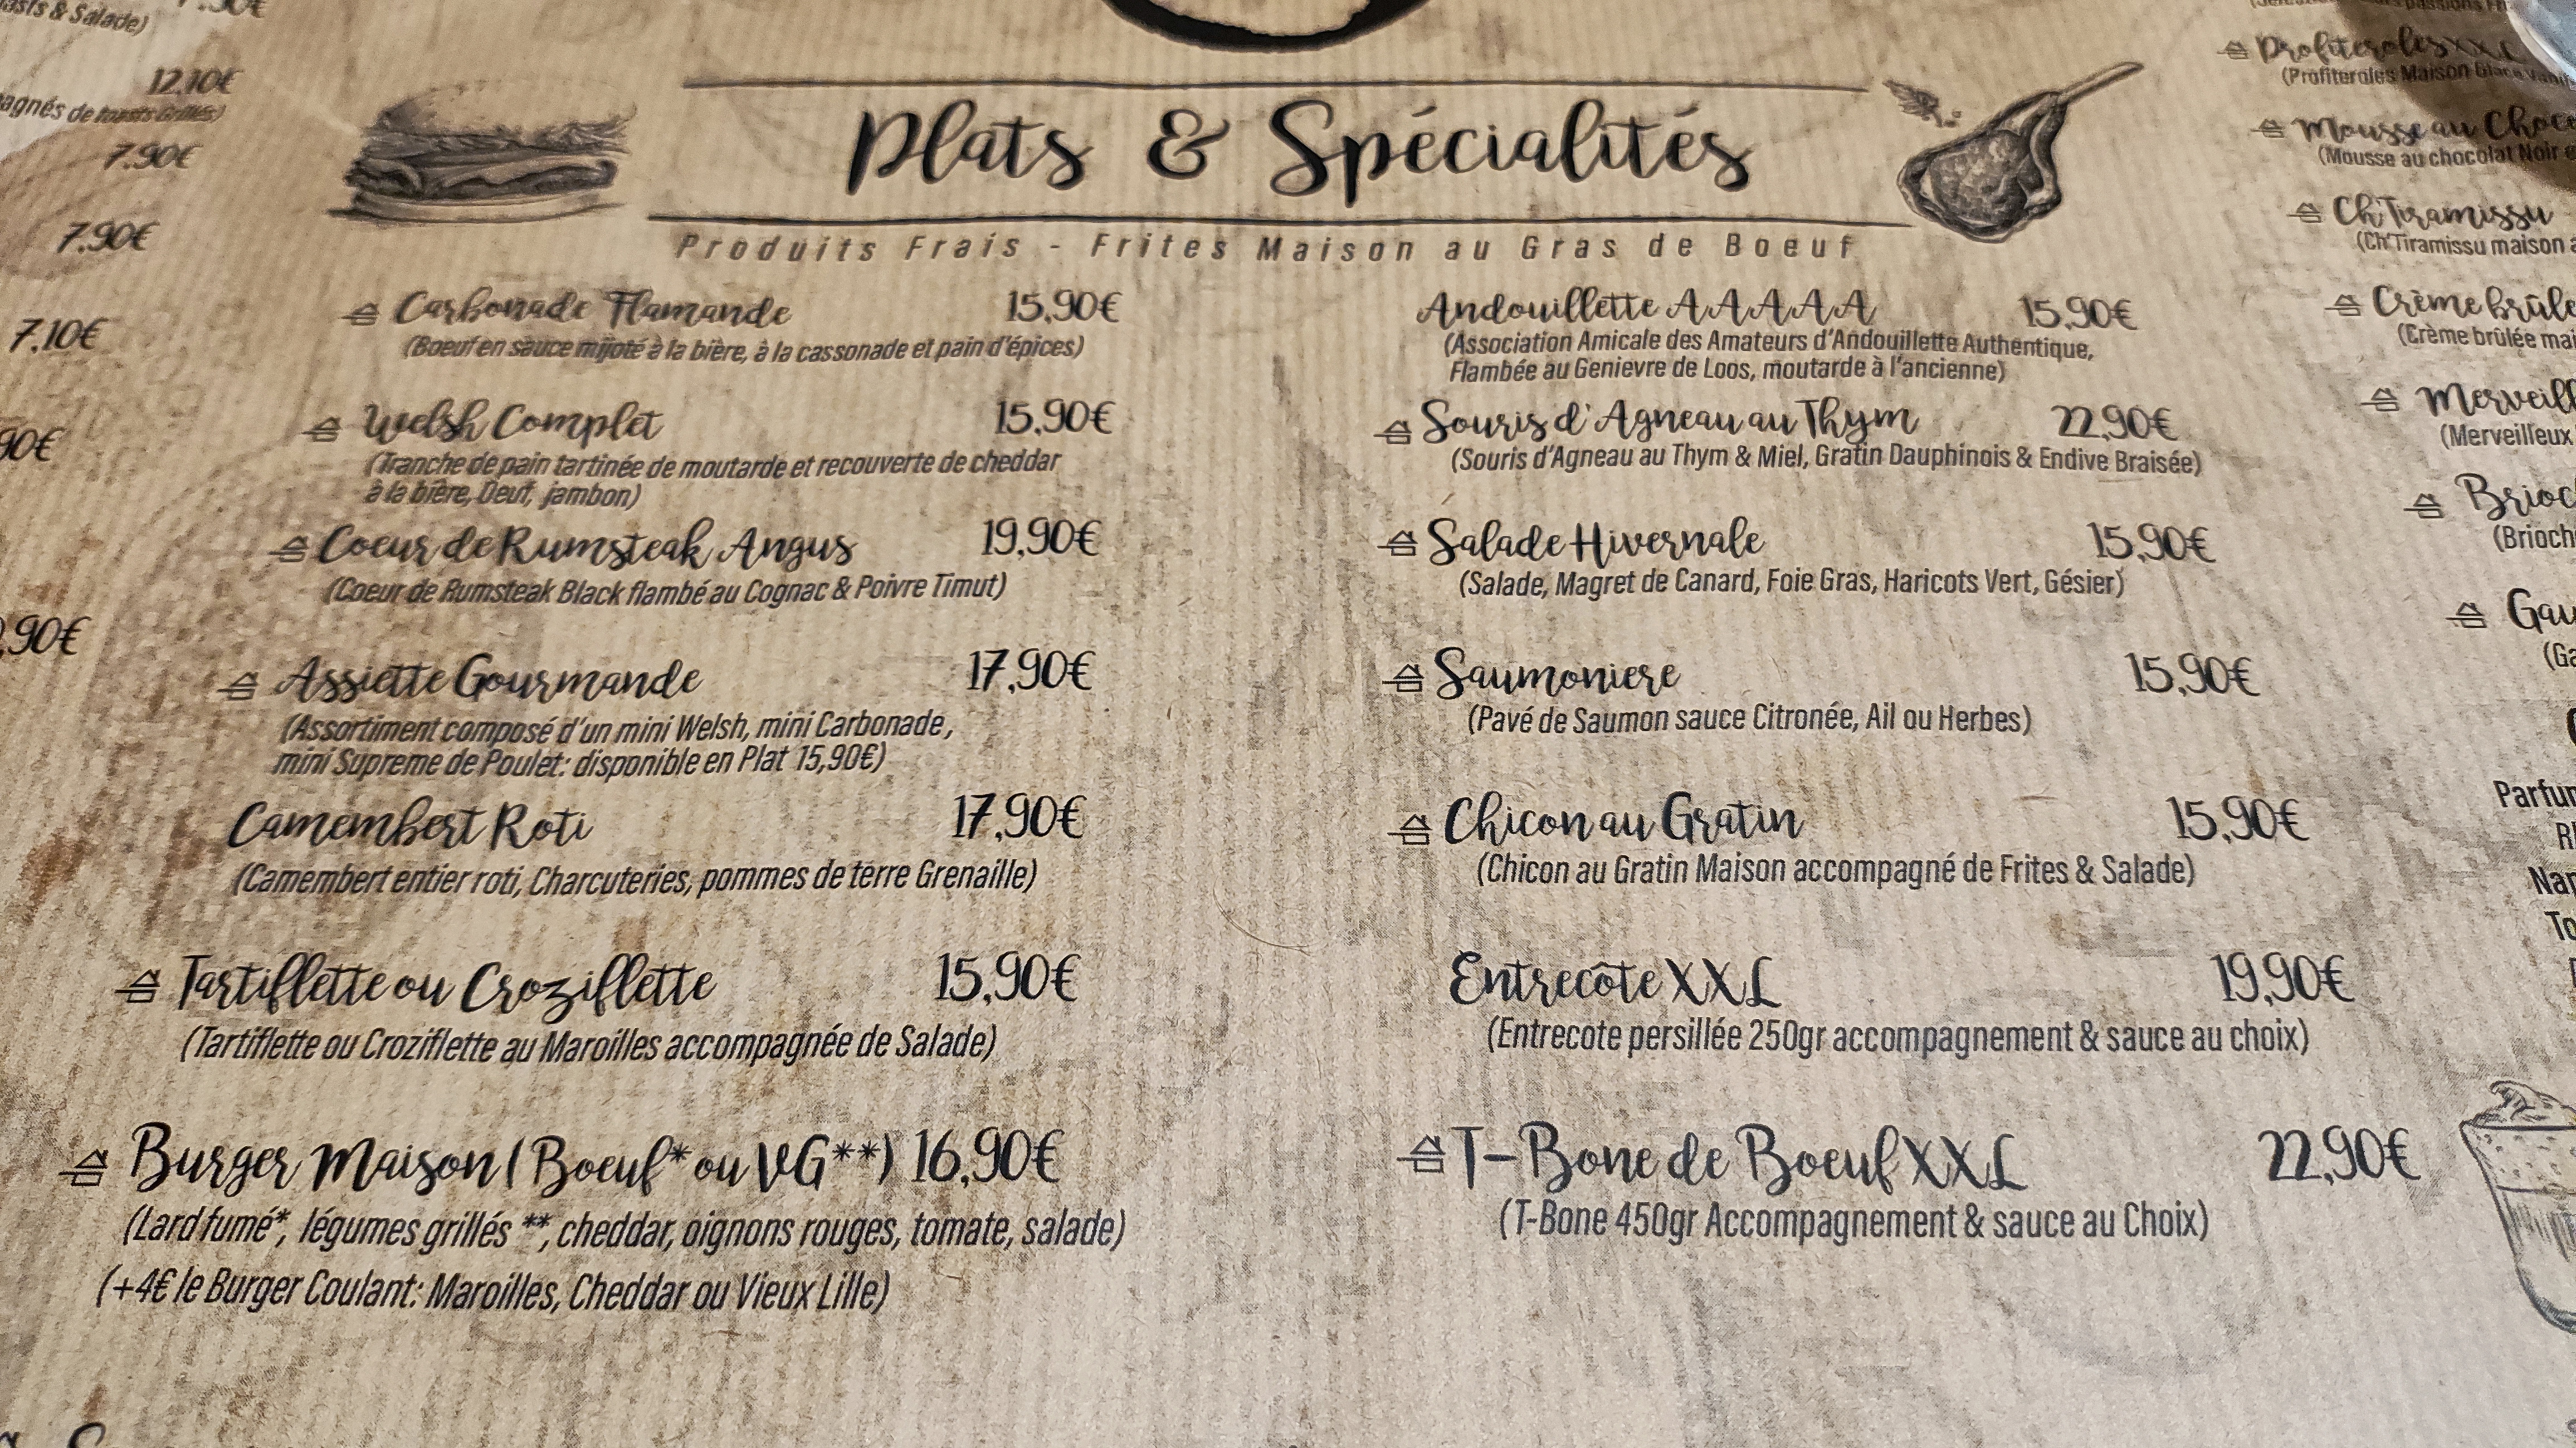 asts & Salade)
12.10€
agnés de toasts Grillés)
7.90€
7.90€
7.10€
90€
,90€
Plats & Spécialités
Produits Frais - Frites Maison au Gras de Boeuf
Carbonade Flamande 15,90€
(Boeuf en sauce mijoté à la bière, à la cassonade et pain d'épices)
Welsh Complet 15,90€
(Tranche de pain tartinée de moutarde et recouverte de cheddar
à la bière, Oeuf, jambon)
Coeur de Rumsteak Angus 19,90€
(Coeur de Rumsteak Black flambé au Cognac & Poivre Timut)
Assiette Gourmande 17,90€
(Assortiment composé d'un mini Welsh, mini Carbonade,
mini Supreme de Poulet: disponible en Plat 15,90€)
Camembert Roti 17,90€
(Camembert entier roti, Charcuteries, pommes de terre Grenaille)
Tartiflette ou Croziflette 15,90€
(Tartiflette ou Croziflette au Maroilles accompagnée de Salade)
Burger Maison (Boeuf* ou VG**) 16,90€
(Lard fumé*, légumes grillés **, cheddar, oignons rouges, tomate, salade)
(+4€ le Burger Coulant: Maroilles, Cheddar ou Vieux Lille)
Andouillette AAAAA 15,90€
(Association Amicale des Amateurs d'Andouillette Authentique,
Flambée au Genievre de Loos, moutarde à l'ancienne)
Souris d'Agneau au Thym 22,90€
(Souris d'Agneau au Thym & Miel, Gratin Dauphinois & Endive Braisée)
Salade Hivernale 15,90€
(Salade, Magret de Canard, Foie Gras, Haricots Vert, Gésier)
Saumoniere 15,90€
(Pavé de Saumon sauce Citronée, Ail ou Herbes)
Chicon au Gratin 15,90€
(Chicon au Gratin Maison accompagné de Frites & Salade)
Entrecôte XXL 19,90€
(Entrecote persillée 250gr accompagnement & sauce au choix)
T-Bone de Boeuf XXL 22,90€
(T-Bone 450gr Accompagnement & sauce au Choix)
Profiteroles XXL
(Profiteroles Maison Glace Vani
Mousse au Choco
(Mousse au chocolat Noir e
Ch'Tiramissu
(Ch'Tiramissu maison a
Crème brûlé
(Crème brûlée mai
Merveill
(Merveilleux
Brioc
(Brioch
Gau
(Ga
Parfum
Nap
To